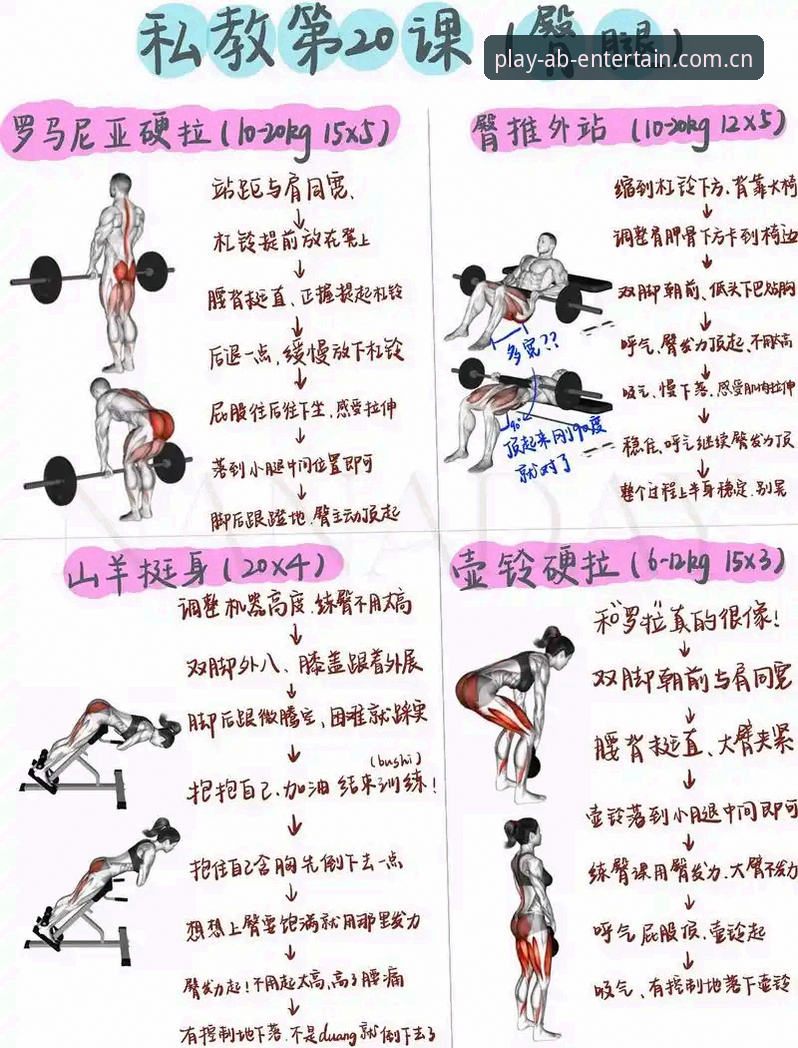 私教第20课(臀腿)
play-ab-entertain.com.cn
罗马尼亚硬拉(10-20kg 15x5)
站距与肩同宽、
杠铃提前放在凳上
腰背挺直、正握提起杠铃
后退一点,缓慢放下杠铃
屁股往后往下坐,感受拉伸
落到小腿中间位置即可
脚后跟蹬地、臀主动顶起
臀推外站 (10-20kg 12x5)
缩到杠铃下方、背靠大椅
调整肩胛骨下方卡到椅边
双脚朝前、低头下巴贴胸
呼气、臀发力顶起、不用太高
吸气、慢下落、感受肌肉拉伸
稳住、呼气继续臀发力顶
整个过程上半身稳定、别晃
多宽??
90°
顶起来刚90度
就对了
山羊挺身(20x4)
调整机器高度、练臀不用太高
双脚外八、膝盖跟着外展
脚后跟微腾空、困难就踩实
(bushi)
抱抱自己、加油 结束训练!
抱住自己含胸先倒下去一点
想想上臀要饱满就用那里发力
臀发力起!不用起太高、高了腰痛
有控制地下落、不是duang就倒下去了
壶铃硬拉(6-12kg 15x3)
和"罗拉"真的很像!
双脚朝前与肩同宽
腰背挺直、大臂夹紧
壶铃落到小腿中间即可
练臀课用臀发力、大臂不发力
呼气 屁股顶、壶铃起
吸气、有控制地落下壶铃
NANADAY